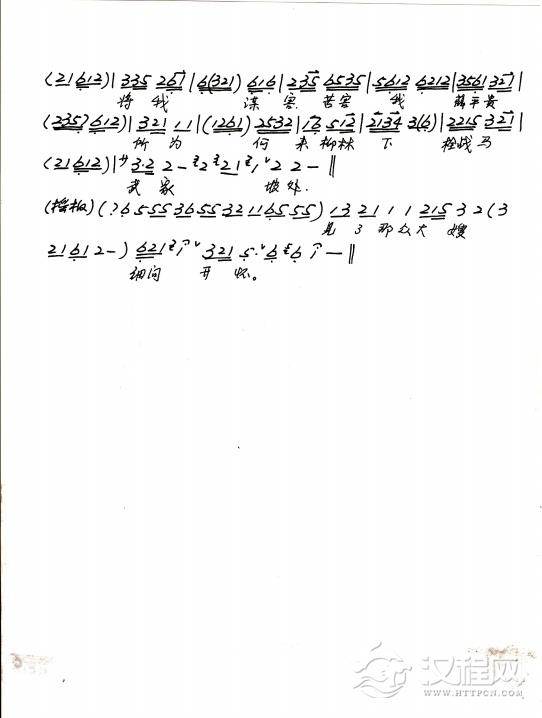 (21 612)| 335 261 |6(321) 616| 235 6535|5612 6212|3561 321|
将我 谋害 苦害 我 薛平贵
(235) 612)| 321 11 |(1261) 2532|16 512|2134 3(6)|2215 321|
所为 何来 柳林 下 拴战马
(21 612)| サ 3·2 2 – 2 21 1 ˇ 2 2 – ‖
武家 坡外.
(摇板) (76 555 36 55 32 11 65 55) 13 21 1 1 215 3 2 (3
见了那众大嫂
21 61 2 –) 621 1 ˇ 321 5·ˇ 6 6 1 — ‖
细问 开怀。
汉程网
WWW.HTTPCN.COM